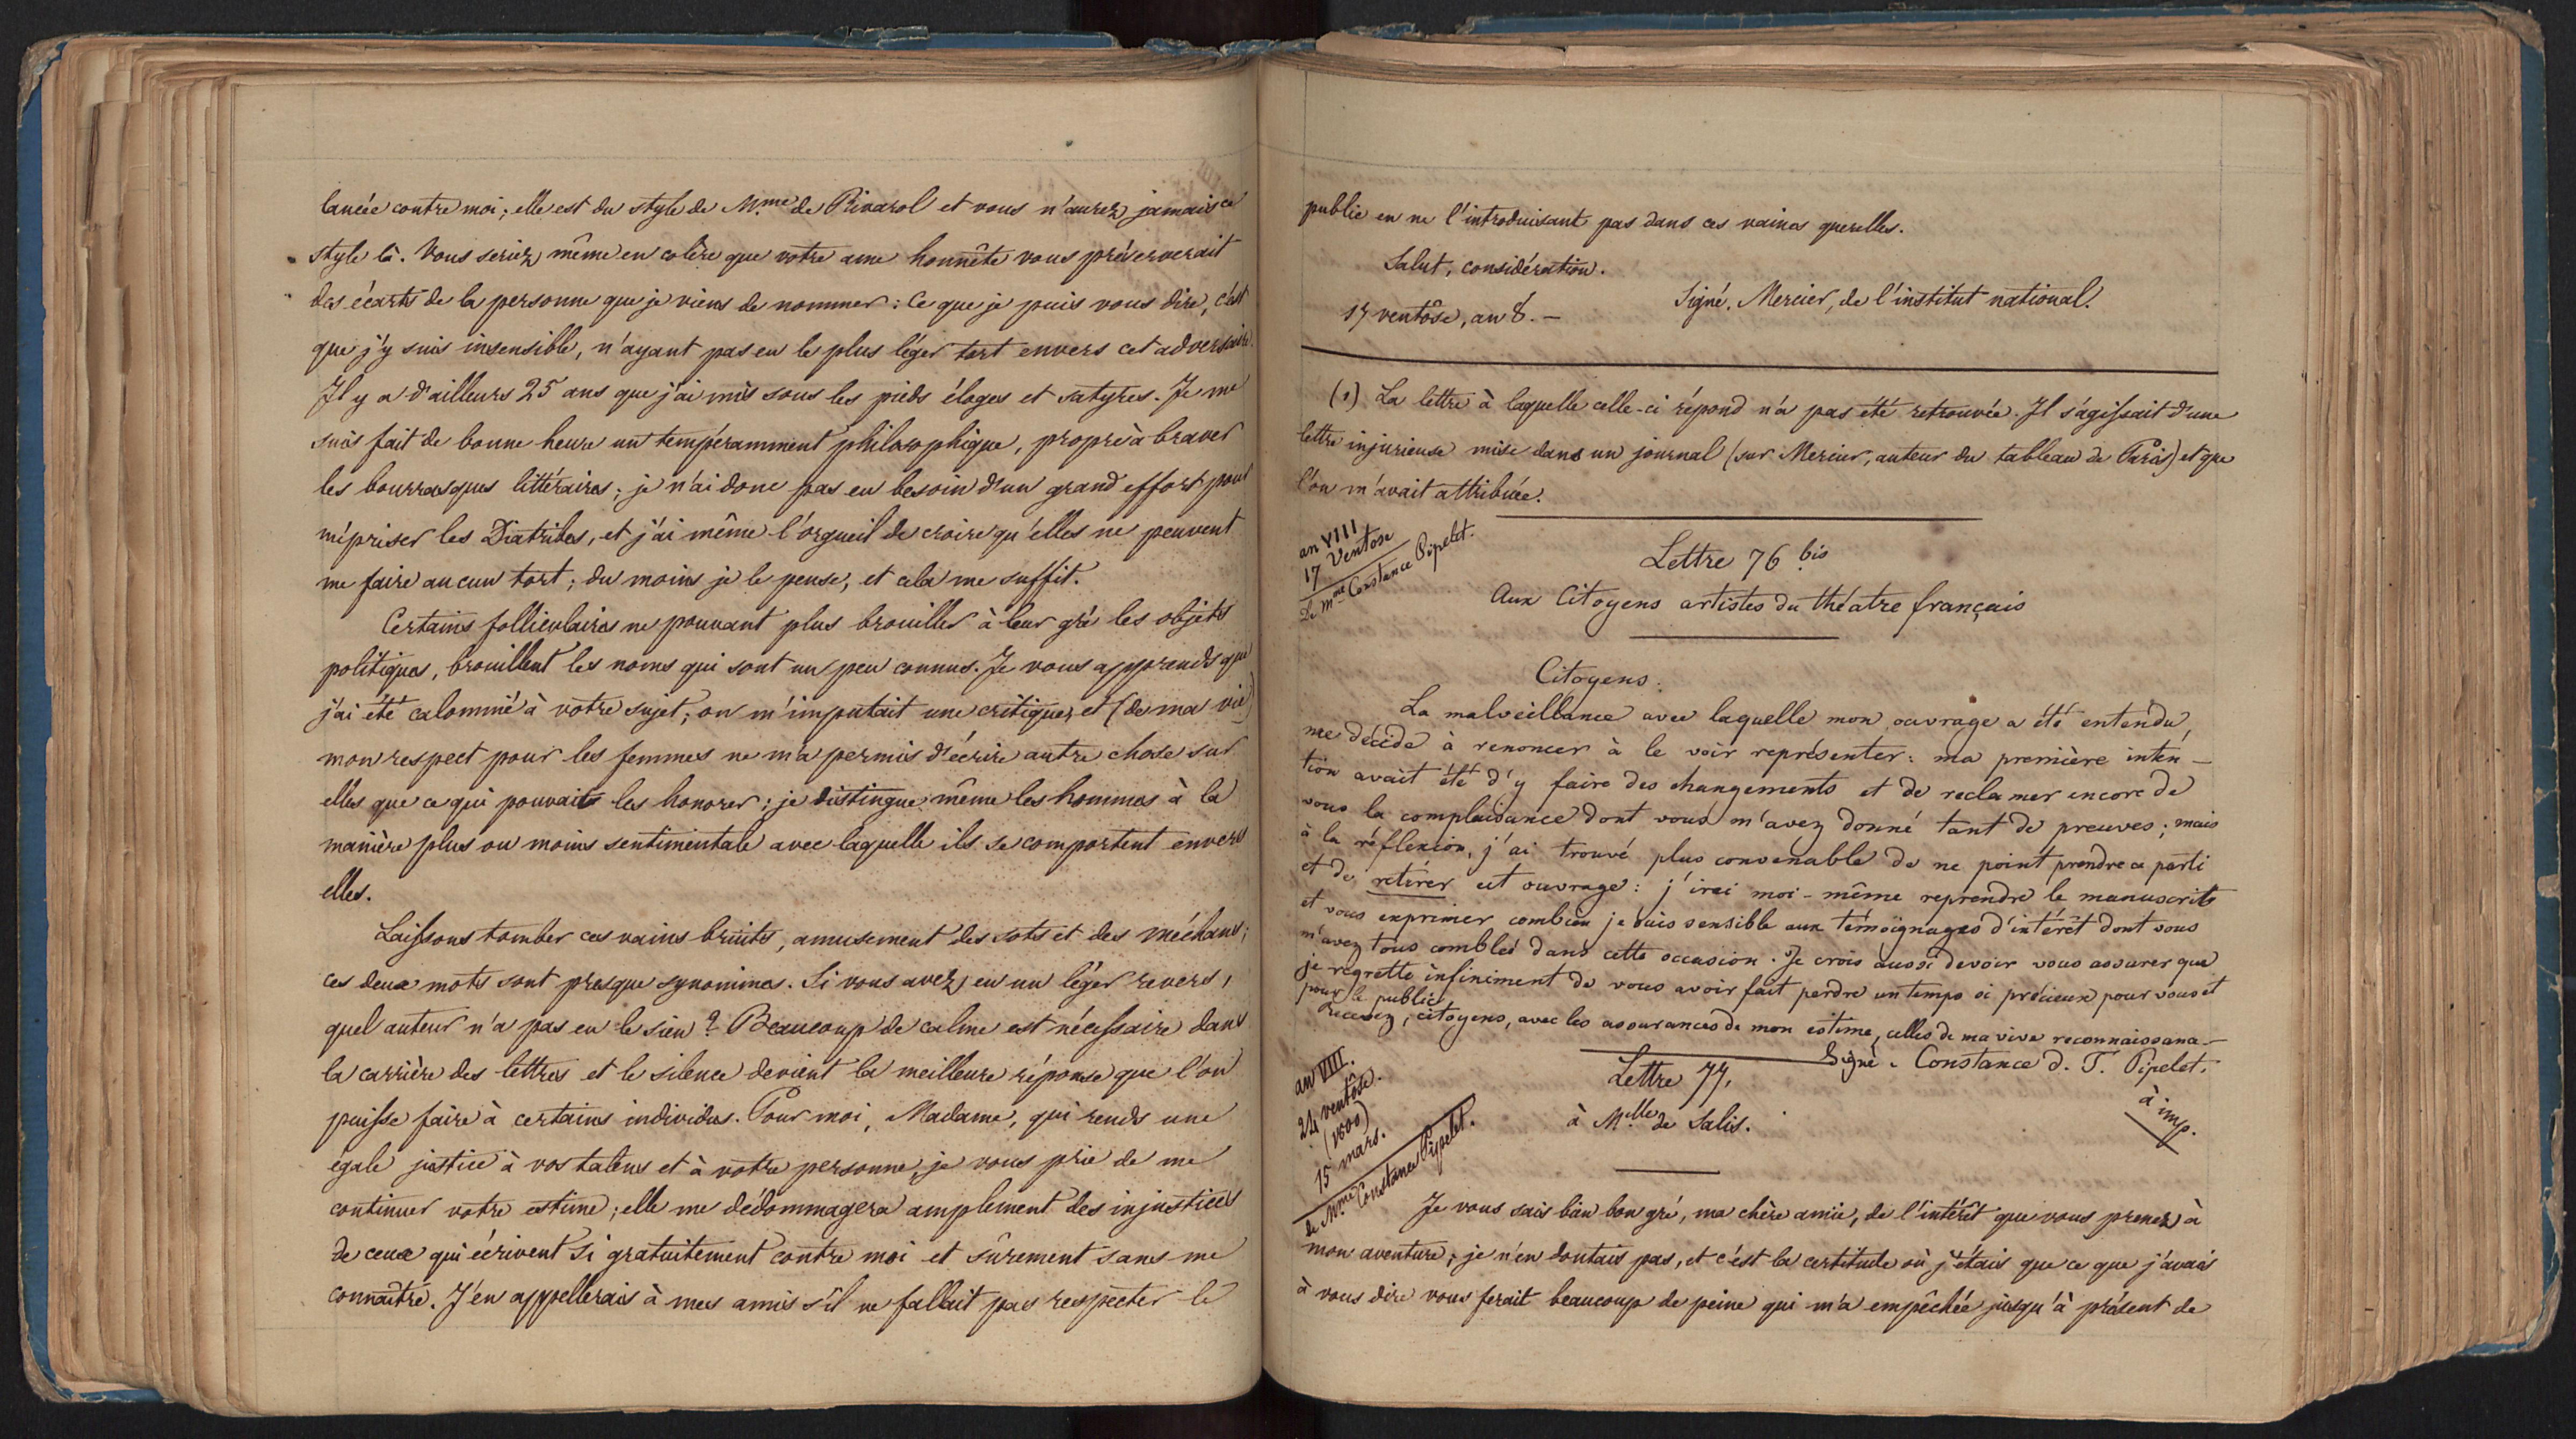 lancée contre moi; elle est du style de M.me de Rivarol et vous n'aurez jamais ce
style là. Vous seriez même en colère que votre ame honnête vous préserverait
des écarts de la personne que je viens de nommer: Ce que je puis vous dire, c'est
que j'y suis insensible, n'ayant pas eu le plus léger tort envers cet adversaire.
Il y a d'ailleurs 25 ans que j'ai mis sous les pieds éloges et satyres. Je me
suis fait de bonne heure un tempéramment philosophique, propre à braver
les bourrasques littéraires; je n'ai donc pas eu besoin d'un grand effort pour
mépriser les Diatribes, et j'ai même l'orgueil de croire qu'elles ne peuvent
me faire aucun tort; du moins je le pense, et cela me suffit.
Certains folliculaires ne pouvant plus brouiller à leur gré les objets
politiques, brouillent les noms qui sont un peu connus. Je vous apprends que
j'ai été calomnié à votre sujet; on m'imputait une critique, et (de ma vie)
mon respect pour les femmes ne m'a permis d'écrire autre chose sur
elles que ce qui pouvait les honorer; je distingue même les hommes à la
manière plus ou moins sentimentale avec laquelle ils se comportent envers
elles.
Laissons tomber ces vains bruits, amusement des sots et des méchans;
ces deux mots sont presque synonimes. Si vous avez eu un léger revers,
quel auteur n'a pas eu le sien? Beaucoup de calme est nécessaire dans
la carrière des lettres et le silence devient la meilleure réponse que l'on
puisse faire à certains individus. Pour moi, Madame, qui rends une
égale justice à vos talens et à votre personne, je vous prie de me
continuer votre estime; elle me dédommagera amplement des injustices
de ceux qui écrivent si gratuitement contre moi et sûrement sans me
connaître. J'en appellerais à mes amis s'il ne fallait pas respecter le
public en ne l'introduisant pas dans ces vaines querelles.
Salut, considération.
Signé. Mercier, de l'institut national.
17 ventôse, an 8. —
(1) La lettre à laquelle celle-ci répond n'a pas été retrouvée. Il s'agissait d'une
lettre injurieuse mise dans un journal (sur Mercier, auteur du tableau de Paris) et que
l'on m'avait attribuée.
an VIII
17 Ventose
De Mme Constance Pipelet.
Lettre 76 bis
Aux Citoyens artistes du théatre français
Citoyens.
La malveillance avec laquelle mon ouvrage a été entendu,
me décide à renoncer à le voir représenter: ma première inten-
tion avait été d'y faire des changements et de reclamer encore de
vous la complaisance dont vous m'avez donné tant de preuves; mais
à la réflexion, j'ai trouvé plus convenable de ne point prendre ce parti
et de retirer cet ouvrage: j'irai moi-même reprendre le manuscrits
et vous exprimer combien je suis sensible aux témoignages d'intérêt dont vous
m'avez tous comblés dans cette occasion. Je crois aussi devoir vous assurer que
je regrette infiniment de vous avoir fait perdre un temps si précieux pour vous et
pour le public.
Recevez, citoyens, avec les assurances de mon estime, celles de ma vive reconnaissance.
Signé. Constance d. T. Pipelet.
an VIII.
24 ventôse.
(1800)
15 mars.
de Mme Constance Pipelet.
Lettre 77.
à imp.
à Melle de Salis.
Je vous sais bien bon gré, ma chère amie, de l'intérêt que vous prenez à
mon aventure; je n'en doutais pas, et c'est la certitude où j'étais que ce que j'avais
à vous dire vous ferait beaucoup de peine qui m'a empêchée jusqu'à présent de